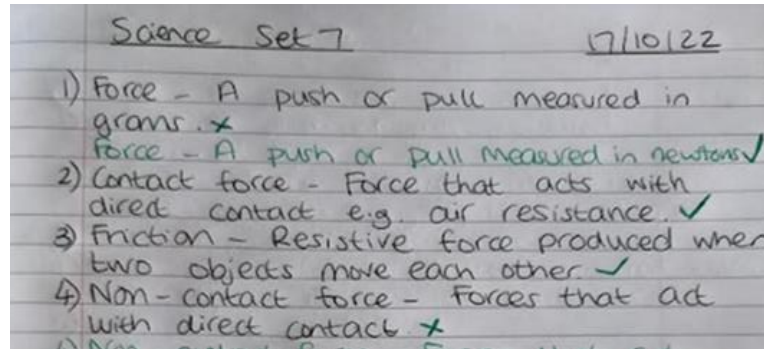 Science Set 7 17/10/22
1) Force - A push or pull measured in
grams. x
Force - A push or pull measured in newtons ✓
2) Contact force - Force that acts with
direct contact e.g. air resistance. ✓
3) Friction - Resistive force produced when
two objects move each other ✓
4) Non-contact force - Forces that act
with direct contact x